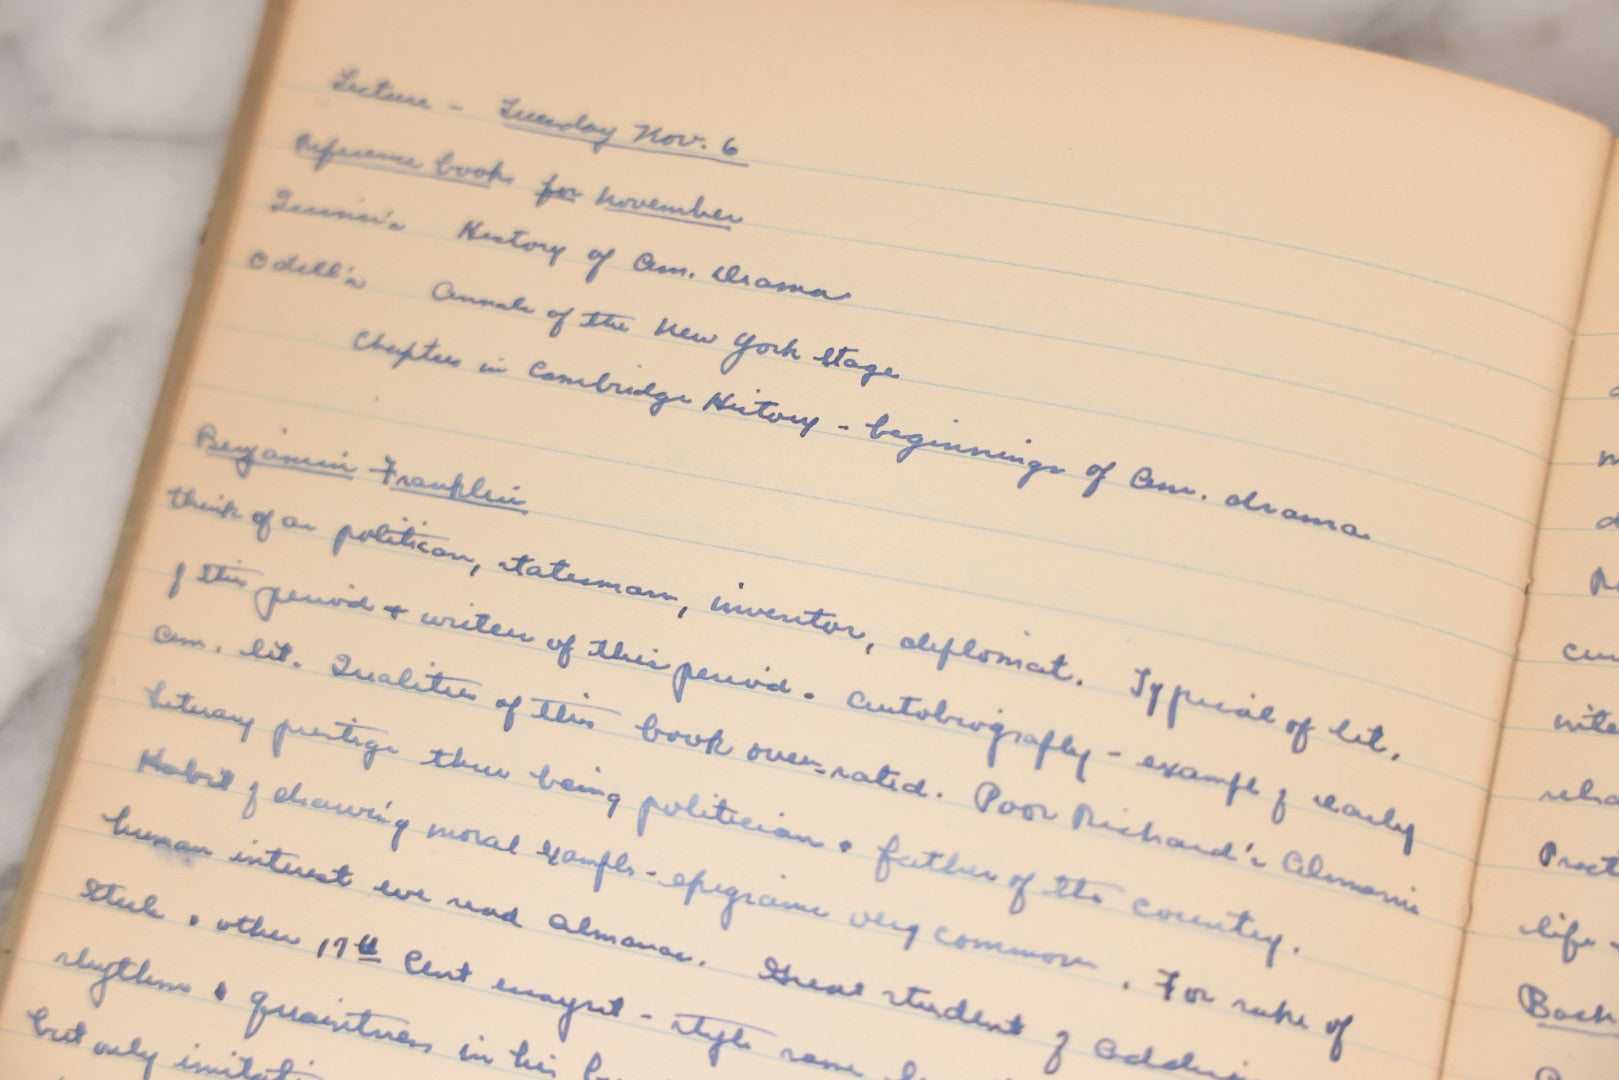 Lecture - Tuesday Nov. 6
Reference books for November
Quinn's History of Am. Drama
Odell's Annals of the New York Stage
Chapters in Cambridge History - beginnings of Am. drama
Benjamin Franklin
think of as politican, statesman, inventor, diplomat. Typical of lit.
of this period & writer of this period. Autobiography - example of early
Am. lit. Qualities of this book over-rated. Poor Richard's Almanac
Literary prestige thru being politician & father of the country.
Habit of drawing moral examples - epigrams very common. For sake of
human interest we read almanac. Great student of Addison
Steele & other 17th Cent essayist - style same
rhythm & quaintness in his
but only
Back
life -